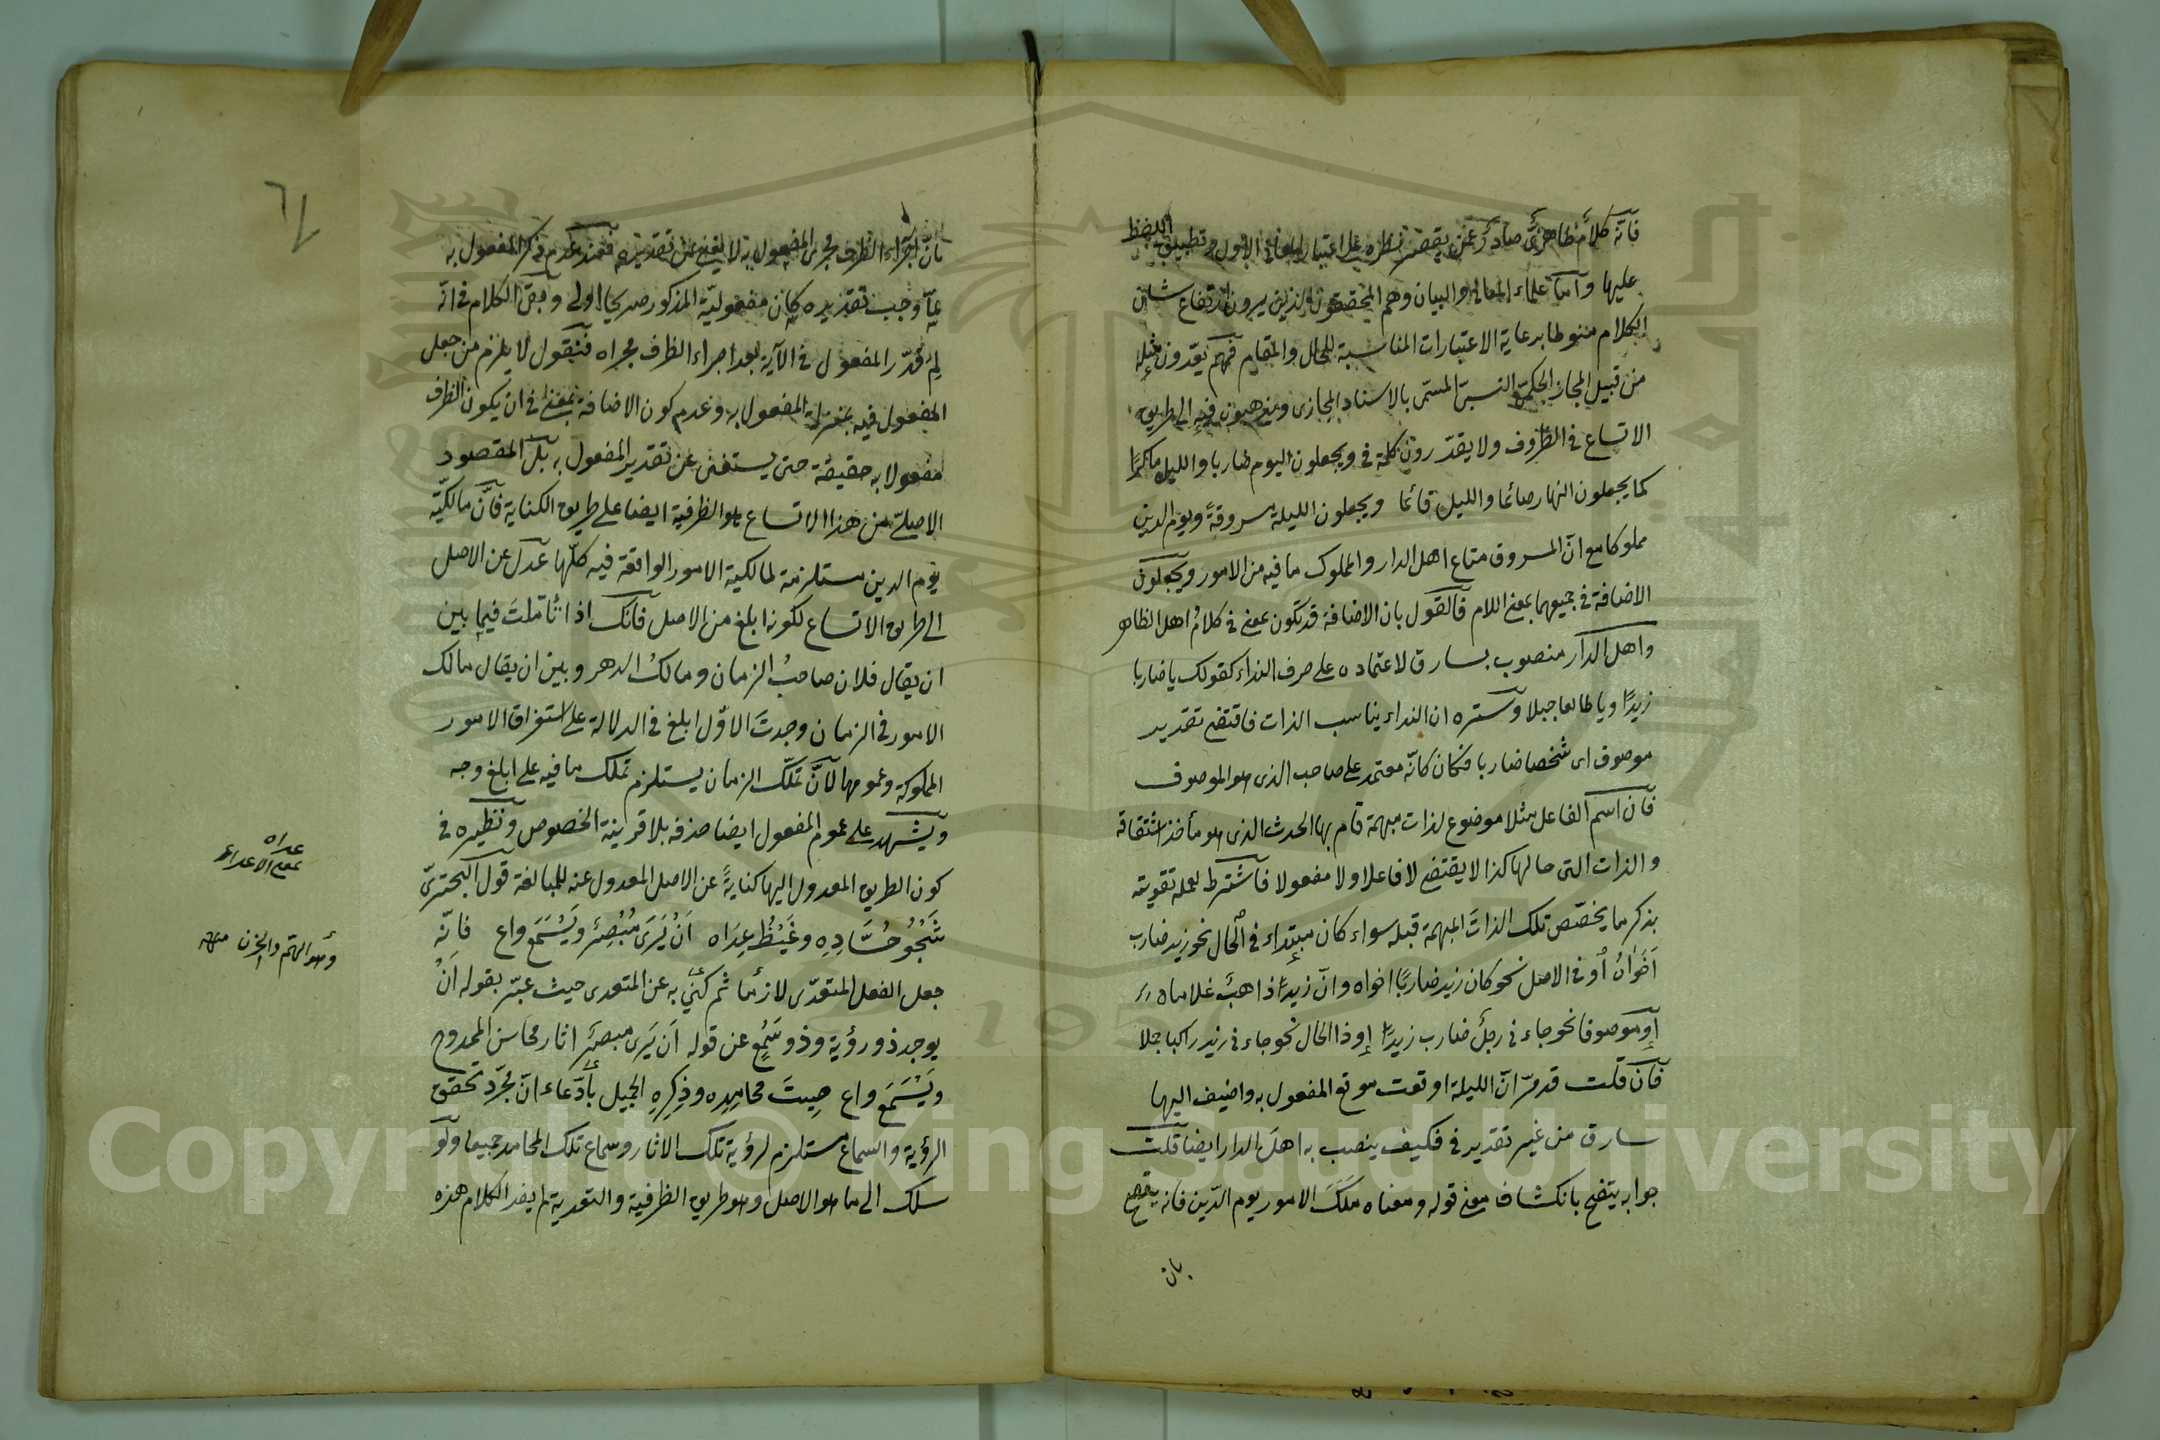 فانّه كلام ظاهرىّ صادر عمّن يقصر نظره على اعتبار المعانى الاول وتطبيق اللفظ
عليها وآما علماء المعانى والبيان وهم المحققون الذين يرون ارتفاع شان
الكلام منوطا برعاية الاعتبارات المناسبة للحال والمقام فهم يعدون مثله
من قبيل المجاز الحكمىّ والنسبىّ المسمى بالاسناد المجازى ويذهبون فيه الى طريق
الاتساع فى الظروف ولا يقدّرون كلمة فى ويجعلون اليوم ضاربا والليل ماكرًا
كما يجعلون النهار صائما والليل قائما ويجعلون الليلة مسروقةً ويوم الدين
مملوكا مع انّ المسروق متاع اهل الدار والمملوك ما فيه من الامور ويجعلون
الاضافة فى جميعها بمعنى اللام فآلقول بان الاضافة قد تكون بمعنى فى كلام اهل الظاهر
واهل الدار منصوب بسارق لاعتماده على حرف النداء كقولك يا ضاربا
زيدًا ويا طالعا جبلا وسرّه ان النداء يناسب الذات فاقتضى تقدير
موصوف اى شخصا ضاربا فكان كانّه معتمد على صاحب الذى هو الموصوف
فان اسم الفاعل مثلا موضوع لذات مبهمة قام بها الحدث الذى هو مأخذ اشتقاقه
والذات التى حالها كذا لا يقتضى لا فاعلا ولا مفعولا فآشترط لعمله تقويته
بذكر ما يخصّص تلك الذات المبهمة قبله سواء كان مبتداء فى الحال نحو زيد ضارب
اَخَوَاهُ اَوْ فى الاصل نحو كان زيد ضاربًا اخواه وانّ زيدًا ذاهبٌ غلاماه
اَو موصوفا نحو جاء فى رجلٌ ضارب زيدًا او ذا الحال نحو جاء فى زيد راكبا جملا
فآن قلت قد مرّ انّ الليلة اوقعت موقع المفعول به واضيف اليها
سارق من غير تقدير فى فكيف ينصب به اهلَ الدار ايضا قلت
جوابه يتضح بانكشاف معنى قوله ومعناه مَلَكَ الامور يوم الدّين فانه يتضح
بان
بان اجراء الظرف مجرى المفعول به لا يغنى عن تقديره فعند عدم ذكر المفعول به
لمّا وجب تقديره كان مفعوليّة المذكور صريحا اولى وبقى الكلام فى انّه
لِمَ قدّر المفعول فى الآية بعد اجراء الظرف مجراه فنقول لا يلزم من جعل
المفعول فيه بمنزلة المفعول به وعدم كون الاضافة بمعنى فى ان يكون الظرف
مفعولا به حقيقة حتى يستغنى عن تقدير المفعول به بل المقصود
الاصلىّ من هذا الاتساع هو الظرفية ايضا على طريق الكناية فانّ مالكيّة
يوم الدين مستلزمة لمالكية الامور الواقعة فيه كلّها عدل عن الاصل
الى طريق الاتساع لكونه ابلغ من الاصل فانّك اذا تأملتَ فيما بين
ان يقال فلان صاحبُ الزمان ومالكُ الدهر وبين ان يقال مالك
الامور فى الزمان وجدتَ الاوّل ابلغ فى الدلالة على استغراق الامور
المملوكة وعمومها لآنّ تملّك الزمان يستلزم تملّك ما فيه على ابلغ وجه
ويشهد على عموم المفعول ايضا حذفه بلا قرينة الخصوص ونظيره فى
كون الطريق المعدول اليها كنايةً عن الاصل المعدول عنه للمبالغة قول البحترىّ
شَجْوُ حُسَّادِهِ وغَيْظُ عِدَاه اَنْ يَرَى مُبْصِرٌ وَيَسْمَعَ واع فانّه
جعل الفعل المتعدّى لازما ثم كنّى به عن المتعدى حيث عبّر بقوله اَنْ
يوجد ذو رؤية وذو سَمْعٍ عن قوله اَن يَرَى مبصرٌ اثار محاسن الممدوح
ويَسْمَعَ واع صِيتَ محامِدِه وذِكرِهِ الجميل بأدّعاء انّ مجرّد تحقّق
الرؤية والسماع مستلزم لرؤية تلك الاثار وسماع تلك المحامد جميعا ولو
سلك الى ما هو الاصل وهو طريق الظرفية والتعدية لم يفد الكلام هذه
عداه
بمعنى الاعداء
وهو الهمّ والحزن منه
Copyright © King Saud University
1957